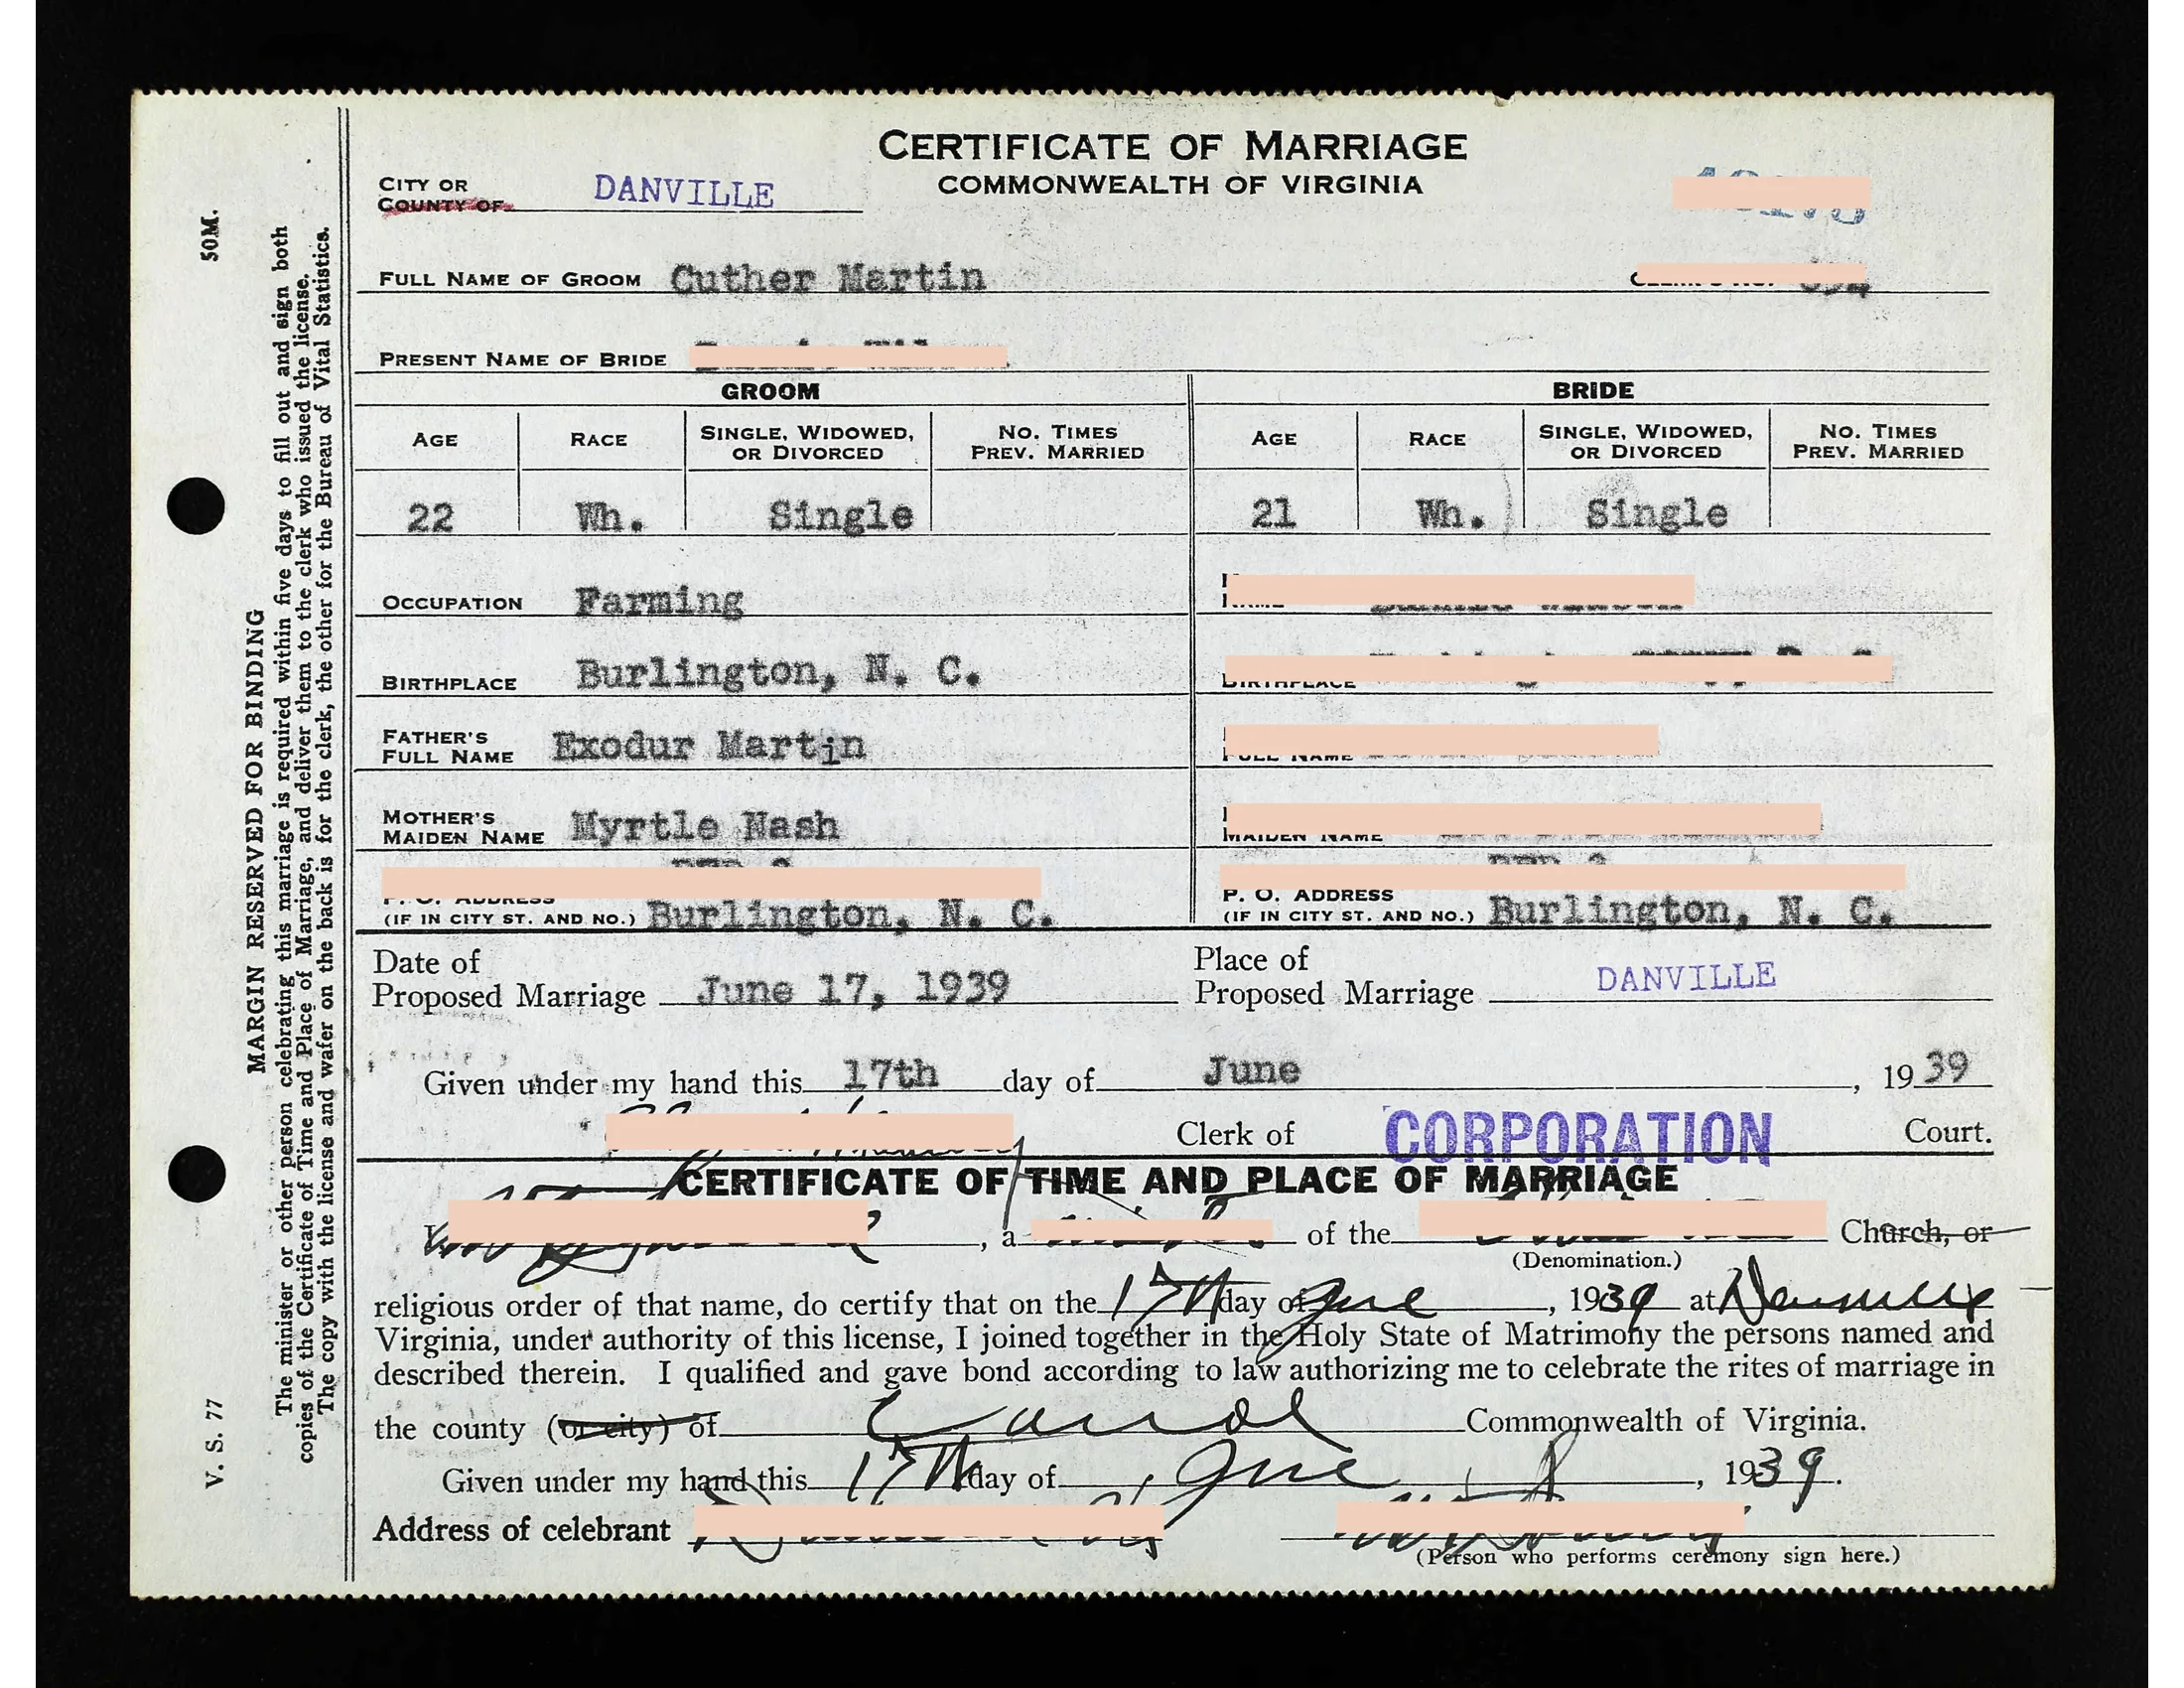 CERTIFICATE OF MARRIAGE
COMMONWEALTH OF VIRGINIA
CITY OR COUNTY OF DANVILLE
FULL NAME OF GROOM Cuther Martin
PRESENT NAME OF BRIDE
GROOM
AGE RACE SINGLE, WIDOWED, OR DIVORCED NO. TIMES PREV. MARRIED
22 Wh. Single
OCCUPATION Farming
BIRTHPLACE Burlington, N. C.
FATHER'S FULL NAME Exodur Martin
MOTHER'S MAIDEN NAME Myrtle Nash
P. O. ADDRESS
(IF IN CITY ST. AND NO.) Burlington, N. C.
BRIDE
AGE RACE SINGLE, WIDOWED, OR DIVORCED NO. TIMES PREV. MARRIED
21 Wh. Single
NAME
BIRTHPLACE
FULL NAME
MAIDEN NAME
P. O. ADDRESS
(IF IN CITY ST. AND NO.) Burlington, N. C.
Date of
Proposed Marriage June 17, 1939
Place of
Proposed Marriage DANVILLE
Given under my hand this 17th day of June, 1939
Clerk of CORPORATION Court.
CERTIFICATE OF TIME AND PLACE OF MARRIAGE
, a of the Church, or
(Denomination.)
religious order of that name, do certify that on the 17th day of June, 1939 at Danville
Virginia, under authority of this license, I joined together in the Holy State of Matrimony the persons named and
described therein. I qualified and gave bond according to law authorizing me to celebrate the rites of marriage in
the county (or city) of Commonwealth of Virginia.
Given under my hand this 17th day of June, 1939.
Address of celebrant
(Person who performs ceremony sign here.)
MARGIN RESERVED FOR BINDING
The minister or other person celebrating this marriage is required within five days to fill out and sign both
copies of the Certificate of Time and Place of Marriage, and deliver them to the clerk who issued the license.
The copy with the license and wafer on the back is for the clerk, the other for the Bureau of Vital Statistics.
V. S. 77
50M.